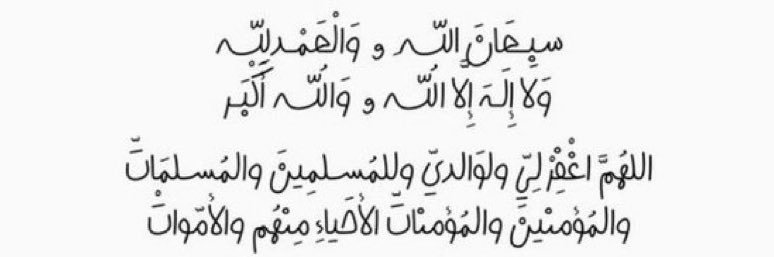 سبحَانَ اللّه و وَالْحَمْدلِلّه
وَلا إِلَهَ إِلَّا اللّه و وَاللّه أَكْبَر
اللهُمَّ اغْفِرْ لِيِّ ولوَالديِّ وللمُسلمِينَ والمُسلمَاتّ
والمُؤمنْينْ والمُؤمناتّ الأحَياءِ مِنْهُم والأمّواتْ